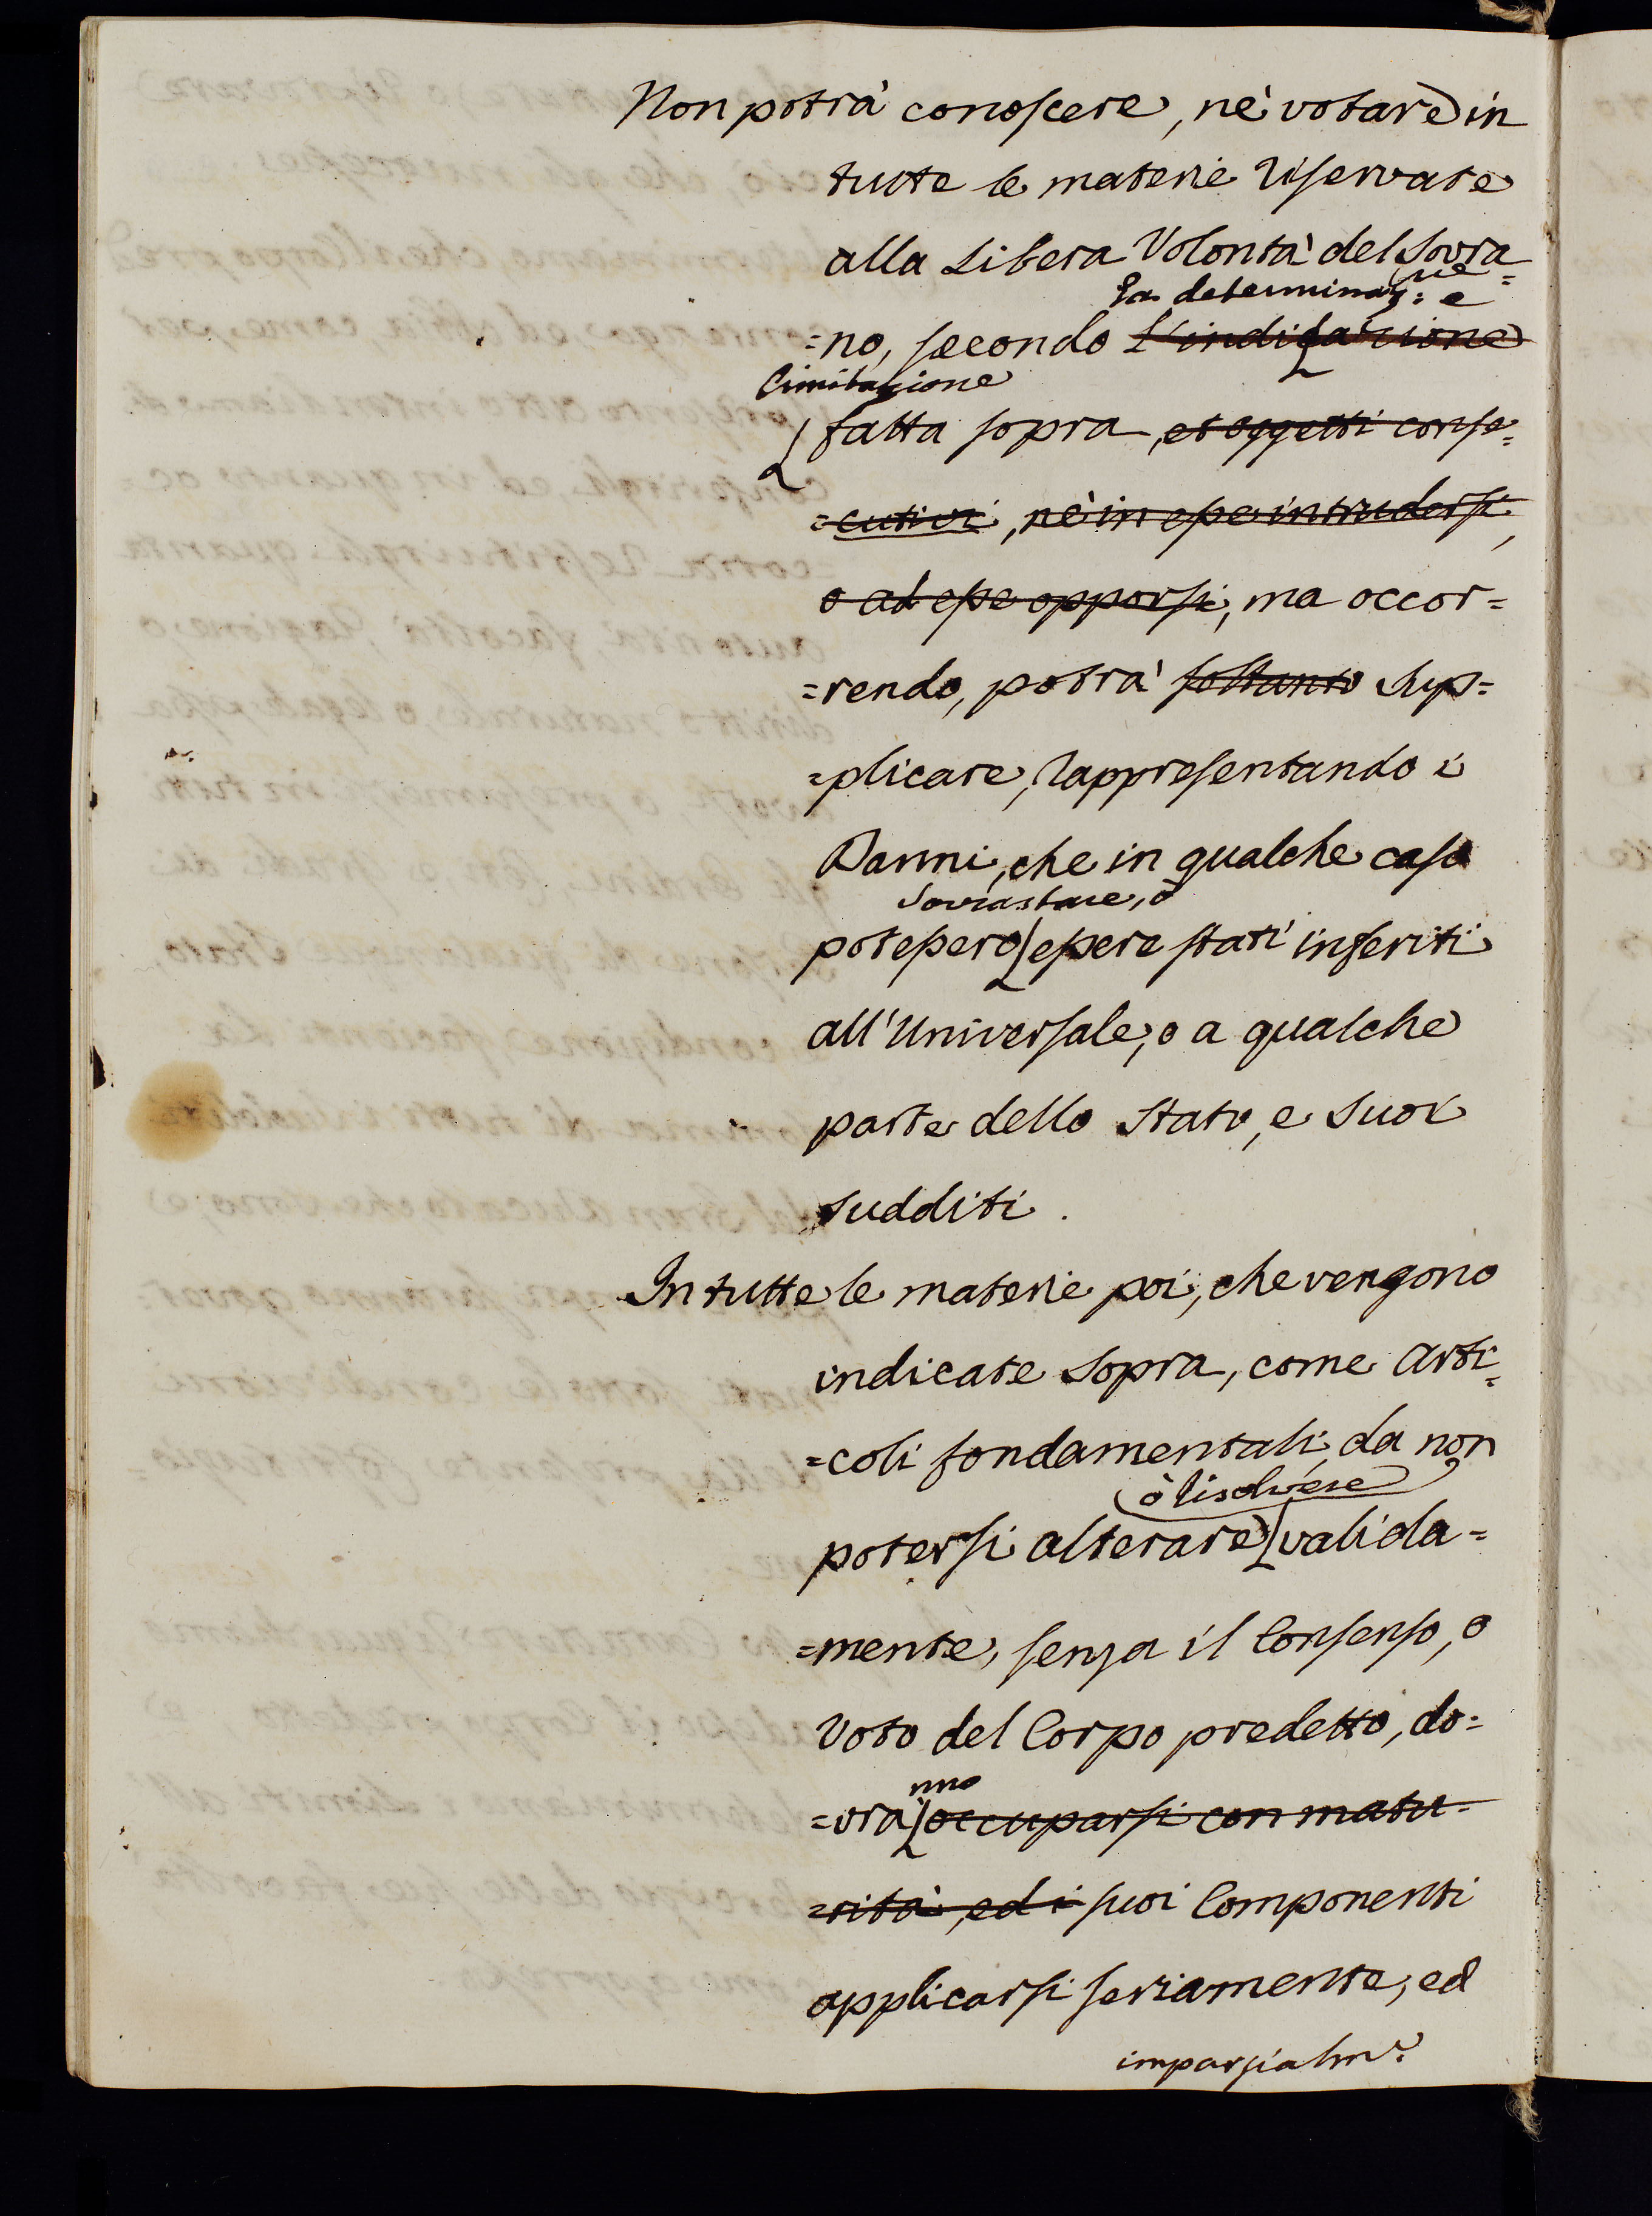 Non potrà conoscere, nè votare in
tutte le materie riservate
alla Libera Volontà del Sovra=
la determinaz:ne e
=no, secondo l'indicazione
limitazione
fatta sopra, et oggetti conse=
=cutivi, nè in esse intrudersi,
o ad esse opporsi, ma occor=
=rendo, potrà soltanto sup=
=plicare, rappresentando i
Danni, che in qualche caso
sovrastare, o
potessero essere stati inferiti
all'Universale, o a qualche
parte dello Stato, e suoi
sudditi.
In tutte le materie poi, che vengono
indicate sopra, come Arti=
=coli fondamentali, da non
o risolvere
potersi alterare valida=
=mente, senza il Consenso, o
Voto del Corpo predetto, do=
nno
=vrà occuparsi con matu=
=rità, ed i suoi Componenti
applicarsi seriamente, ed
imparzialm:e